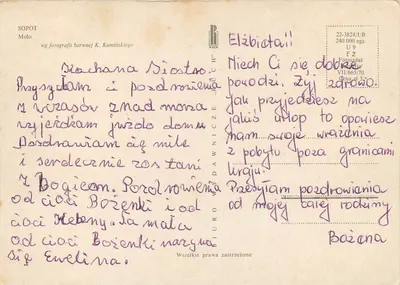 SOPOT
Molo
wg fotografii barwnej K. Kamińskiego
Kochana Siostro
Przysyłam ci pozdrowienia
z wczasów znad morza
wyjeżdżam już do domu
Pozdrawiam cię mile
i serdecznie zostań
z Bogiem. Pozdrowienia
od cioci Bożenki i od
cioci Heleny. Ta mała
od cioci Bożenki nazywa
się Ewelina.
BIURO WYDAWNICZE RUCH
Wszelkie prawa zastrzeżone
22-3824/I/B
240 000 egz.
U 9
F Z
VII/665/70
Elżbieta!!
Niech Ci się dobrze
powodzi. Żyj zdrowo.
Jak przyjedziesz na
jakiś urlop to opowiesz
nam swoje wrażenia
z pobytu poza granicami
kraju.
Przesyłam pozdrowienia
od mojej całej rodziny
Bożena